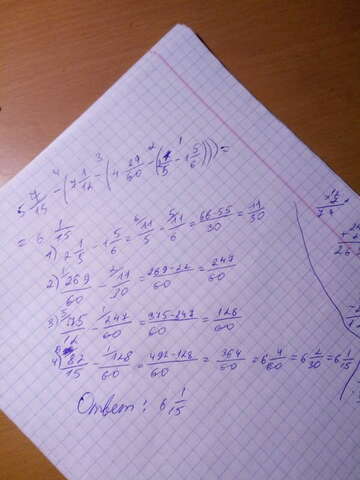 5 7/15 - (7 1/12 - (4 29/60 - (2 1/5 - 1 5/6))) =
= 6 1/15
1) 2 1/5 - 1 5/6 = 11/5 - 11/6 = 66-55/30 = 11/30
2) 269/60 - 11/30 = 269-22/60 = 247/60
3) 75 - 247/60 = 375-247/60 = 128/60
4) 82/15 - 128/60 = 492-128/60 = 364/60 = 6 4/60 = 6 2/30 = 6 1/15
Ответ: 6 1/15